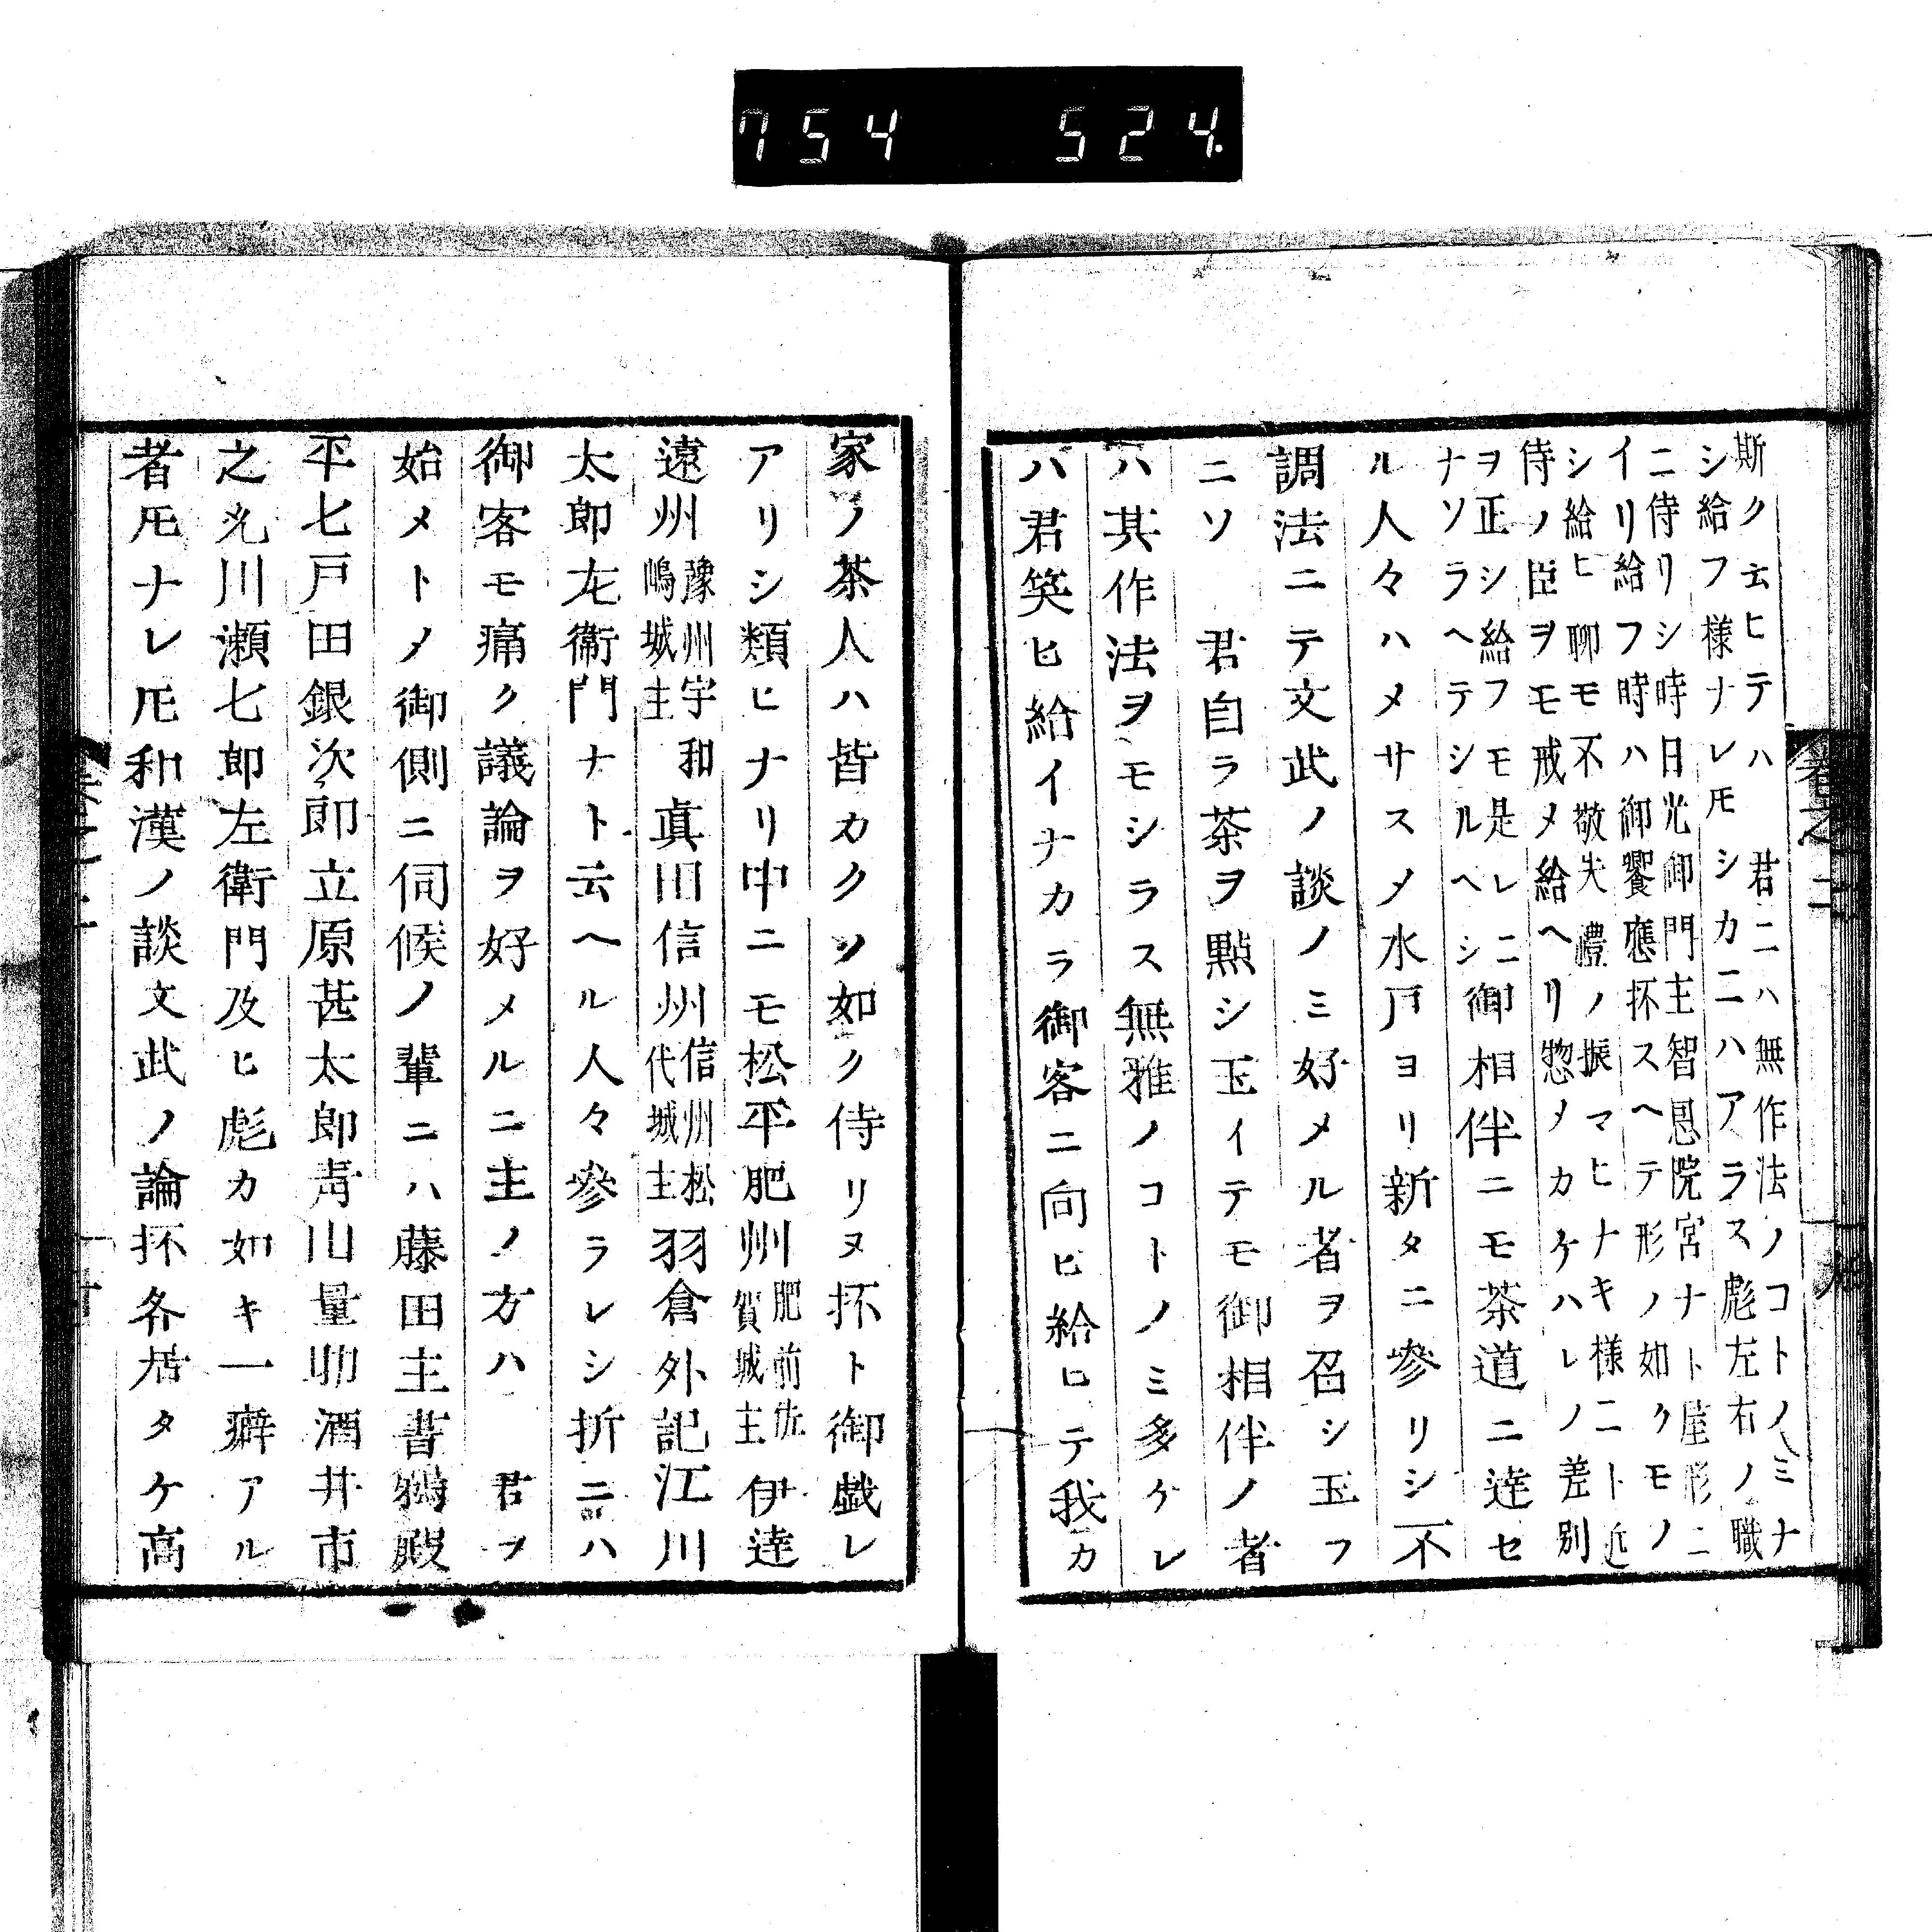 754 524.
斯ク云ヒテハ 君ニハ無作法ノコトノミナ
シ給フ様ナレ𪜈シカニハアラス彪左右ノ職
ニ侍リシ時日光御門主智恩院宮ナト屋形ニ
イリ給フ時ハ御饗應抔スヘテ形ノ如クモノ
シ給ヒ聊モ不敬失禮ノ振マヒナキ様ニト近
侍ノ臣ヲモ戒メ給ヘリ惣ノカケハレノ差別
ヲ正シ給フモ是レニ
ナソラヘテシルヘシ
御相伴ニモ茶道ニ達セ
ル人々ハメサスメ水戸ヨリ新タニ參リシ不
調法ニテ文武ノ談ノミ好メル者ヲ召シ玉フ
ニソ 君自ラ茶ヲ點シ玉イテモ御相伴ノ者
ハ其作法ヲモシラス無雅ノコトノミ多ケレ
ハ君笑ヒ給イナカラ御客ニ向ヒ給ヒテ我カ
卷之二
家ノ茶人ハ皆カクソ如ク侍リヌ抔ト御戯レ
アリシ類ヒナリ中ニモ松平肥州
肥前佐
賀城主
伊達
遠州
豫州宇和
嶋城主
眞田信州
信州松
代城主
羽倉外記江川
太郎左衞門ナト云ヘル人々參ラレシ折ニハ
御客モ痛ク議論ヲ好メルニ主ノ方ハ 君ヲ
始メトメ御側ニ伺候ノ輩ニハ藤田主書鵜殿
平七戸田銀次郎立原甚太郎青山量卯酒井市
之允川瀬七郎左衛門及ヒ彪カ如キ一癖アル
者𪜈ナレ𪜈和漢ノ談文武ノ論抔各居タケ高